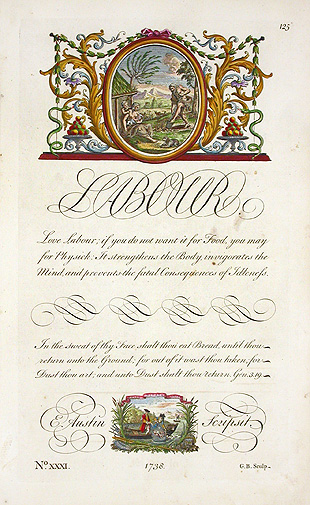 125
LABOUR
Love Labour; if you do not want it for Food, you may
for Physick. It strengthens the Body, invigorates the
Mind, and prevents the fatal Consequences of Idleness.
In the Sweat of thy Face shalt thou eat Bread, until thou
return unto the Ground; for out of it wast thou taken, for
Dust thou art, and unto Dust shalt thou return. Gen. 3.19.
E. Austin Scripsit.
No. XXXI. 1738. G. B. Sculp.